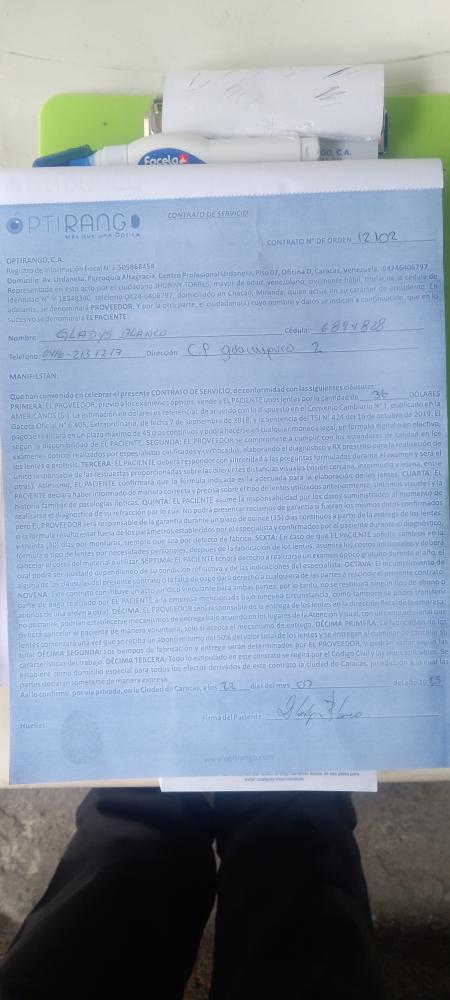 Facela
GO, C.A.
ÓPTIRANGO
MÁS QUE UNA ÓPTICA
CONTRATO DE SERVICIO
CONTRATO N° DE ORDEN 12102
OPTIRANGO, C.A.
Registro de Información Fiscal N° J-505868454
Domicilio: Av. Urdaneta, Parroquia Altagracia, Centro Profesional Urdaneta, Piso 07, Oficina D, Caracas, Venezuela. 04246406797
Representada en este acto por el ciudadano JHONNY TORRES, mayor de edad, venezolano, civilmente hábil, titular de la cédula de
identidad N° V-18348340, teléfono 0424-6406797, domiciliado en Chacao, Miranda, quien actúa en su carácter de presidente. En
adelante, se denominará PROVEEDOR. Y por la otra parte, el ciudadano(a) cuyo nombre y datos se indican a continuación, que en lo
sucesivo se denominará EL PACIENTE:
Nombre: GLADYS BLANCO Cédula: 6894828
Teléfono: 0416-2131217 Dirección: C.P guaicaipuro 2
MANIFIESTAN:
Que han convenido en celebrar el presente CONTRATO DE SERVICIO, de conformidad con las siguientes cláusulas:
PRIMERA: EL PROVEEDOR, previo a los exámenes ópticos, vende a EL PACIENTE unos lentes por la cantidad de 36 DÓLARES
AMERICANOS ($). La estimación en dólares es referencial, de acuerdo con lo dispuesto en el Convenio Cambiario N° 1, publicado en la
Gaceta Oficial N° 6.405, Extraordinaria, de fecha 7 de septiembre de 2018, y la sentencia del TSJ N° 424 del 16 de octubre de 2019. El
pago se realizará en un plazo máximo de 45 días continuos y podrá hacerse en cualquier moneda legal, en formato digital o en efectivo,
según la disponibilidad de EL PACIENTE. SEGUNDA: EL PROVEEDOR se compromete a cumplir con los estándares de calidad en los
exámenes ópticos realizados por especialistas calificados y certificados, elaborando el diagnóstico y RX prescrito para la realización de
los lentes o prótesis. TERCERA: EL PACIENTE deberá responder con sinceridad a las preguntas formuladas durante el examen y será el
único responsable de las respuestas proporcionadas sobre las diferentes distancias visuales (visión cercana, intermedia y lejana, entre
otras). Asimismo, EL PACIENTE confirmará que la fórmula indicada es la adecuada para la elaboración de los lentes. CUARTA: EL
PACIENTE declara haber informado de manera correcta y precisa sobre el tipo de lentes utilizados anteriormente, síntomas visuales y la
historia familiar de patologías ópticas. QUINTA: EL PACIENTE asume la responsabilidad por los datos suministrados al momento de
realizarse el diagnóstico de su refracción por lo cual No podrá presentar reclamos de garantía si fueran los mismos datos confirmados
pero EL PROVEEDOR será responsable de la garantía durante un plazo de quince (15) días continuos a partir de la entrega de los lentes,
si la fórmula resulta estar fuera de los parámetros establecidos por el especialista y confirmados por el paciente durante el diagnóstico,
y treinta (30) días por monturas, siempre que sea por defecto de fábrica. SEXTA: En caso de que EL PACIENTE solicite cambios en la
fórmula o tipo de lentes por necesidades personales, después de la fabricación de los lentes, asumirá los costos adicionales y deberá
cancelar el costo del material y utilizar. SÉPTIMA: EL PACIENTE tendrá derecho a realizarse un examen óptico gratuito durante el año, el
cual podrá ser ajustado dependiendo de su condición refractiva y de las indicaciones del especialista. OCTAVA: El incumplimiento de
alguna de las cláusulas del presente contrato o la falta de pago dará derecho a cualquiera de las partes a rescindir el presente contrato.
NOVENA: Este contrato constituye un acto jurídico vinculante para ambas partes; por lo tanto, no se restituirá ningún tipo de abono o
parte de pago realizado por EL PACIENTE a la empresa mencionada bajo ninguna circunstancia, como tampoco se podrá transferir
abonos de una orden a otra). DÉCIMA: EL PROVEEDOR será responsable de la entrega de los lentes en la dirección fiscal de la empresa;
no obstante, podrían establecerse mecanismos de entrega bajo acuerdo en los lugares de la Atención Visual, con un cargo adicional que
deberá cancelar el paciente de manera voluntaria, solo si acepta el mecanismo de entrega. DÉCIMA PRIMERA: La fabricación de los
lentes comenzará una vez que se reciba un abono mínimo del 50% del valor total de los lentes y se entregan al culminar de cancelar su
total DÉCIMA SEGUNDA: Los tiempos de fabricación y entrega serán determinados por EL PROVEEDOR, y podrán variar según las
características del trabajo. DÉCIMA TERCERA: Todo lo estipulado en este contrato se regirá por el Código Civil y las leyes aplicables. Se
establece como domicilio especial para todos los efectos derivados de este contrato la ciudad de Caracas, jurisdicción a la cual las
partes declaran someterse de manera expresa.
Así lo confirme, por vía privada, en la Ciudad de Caracas, a los 22 días del mes 07 del año 2025
Firma del Paciente: Gladys Blanco
Huellas:
www.optirango.com